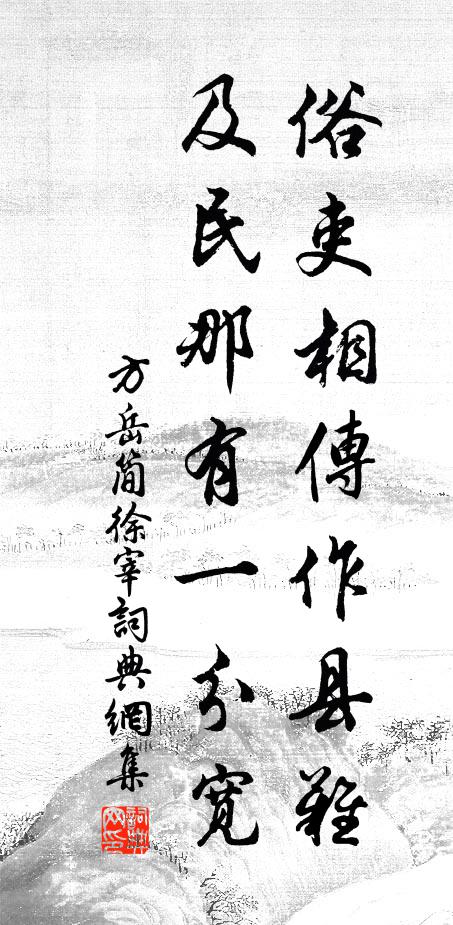 俗吏相傳作县難
及民那有一分寬
方岳簡徐宰詞典網集